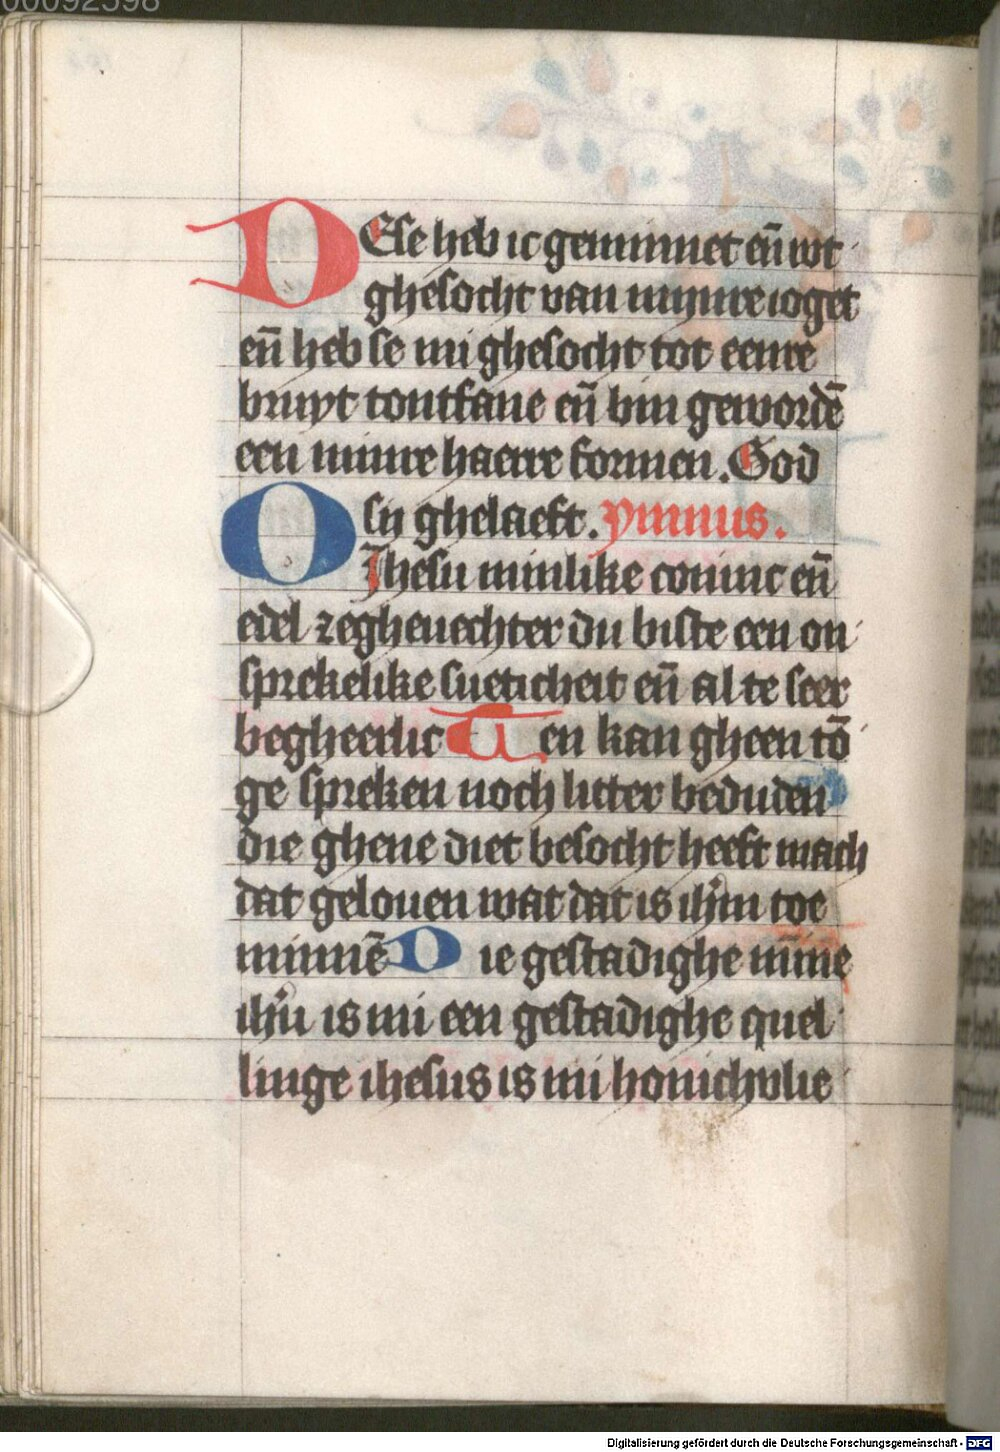 00092598
DEse heb ic geminnet eñ wt
ghesocht van mijnre ioget
eñ heb se mi ghesocht tot eenre
bruyt tontfane eñ bin gewordē
een minre haerre formen. God
sij ghelaeft. ymnus.
O Jhesu minlike coninc eñ
edel zegheuechter du biste een on
sprekelike sueticheit eñ al te seer
begheerlic Ten kan gheen tō
ge spreken noch litter beduden
die ghene diet besocht heeft mach
dat gelouen wat dat is ihm̄ toe
minnē Die gestadighe mīne
ihū is mi een gestadighe quel
linge ihesus is mi honichvlie
Digitalisierung gefördert durch die Deutsche Forschungsgemeinschaft - DFG